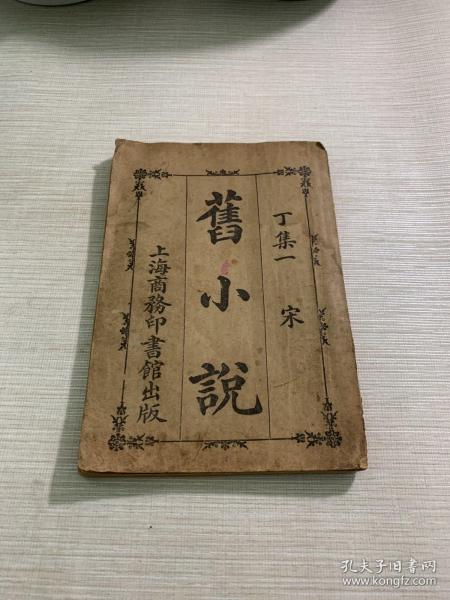 丁集一 宋
舊小說
上海商務印書館出版
孔夫子旧书网
www.kongfz.com